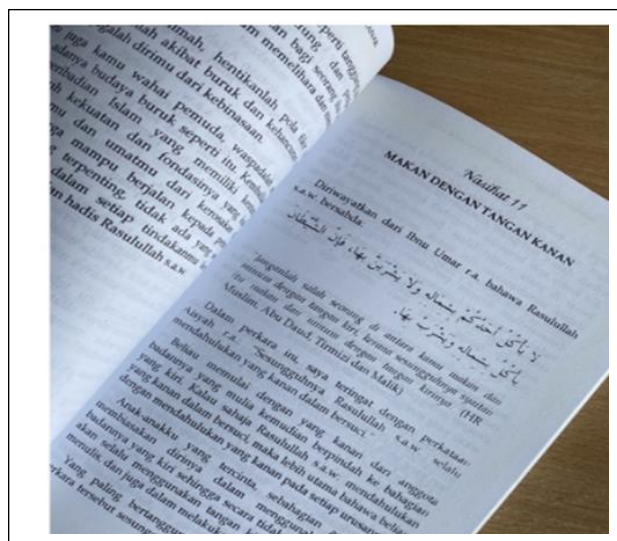 seperti tanggung
dung dan
dan bagi seorang
m memelihara dan
nimah, hentikanlah pola
lah akibat buruk dan kehancuran
egahlah dirimu dari kebinasaan.
juga kamu wahai pemuda, waspadalah
adanya budaya buruk seperti itu.
ribadian Islam yang memiliki
uh kekuatan dan fondasinya yang
mu dan umatmu dari kerosakan
ga mampu berjalan kepada
g terpenting, tidak ada yang
dalam setiap tindakanmu
un hadis Rasulullah s.a.w
Nasihat 11
MAKAN DENGAN TANGAN KANAN
Diriwayatkan dari Ibnu Umar r.a. bahawa Rasulullah
s.a.w. bersabda:
لَا يَأْكُلْ أَحَدُكُمْ بِشِمَالِهِ وَلَا يَشْرَبْ بِهَا، فَإِنَّ الشَّيْطَانَ
يَأْكُلُ بِشِمَالِهِ وَيَشْرَبُ بِهَا.
"Janganlah salah seorang di antara kamu makan dan
minum dengan tangan kiri, kerana sesungguhnya syaitan
itu makan dan minum dengan tangan kirinya." (HR
Muslim, Abu Daud, Tirmizi dan Malik)
Dalam perkara ini, saya teringat dengan perkataan
Aisyah r.a.: "Sesungguhnya Rasulullah s.a.w. selalu
mendahulukan yang kanan dalam bersuci."
Beliau memulai dengan yang kanan dari anggota
badannya yang mulia kemudian berpindah ke bahagian
yang kiri. Kalau sahaja Rasulullah s.a.w. mendahulukan
yang kanan dalam bersuci, maka lebih utama bahawa beliau
dengan mendahulukan yang kanan pada setiap urusan
Anak-anakku yang tercinta, sebahagian
membiasakan dirinya dalam menggunakan
badannya yang kiri sehingga secara tidak
akan selalu menggunakan tangan
menulis, dan juga dalam melakukan
Yang paling bertanggung
perkara tersebut